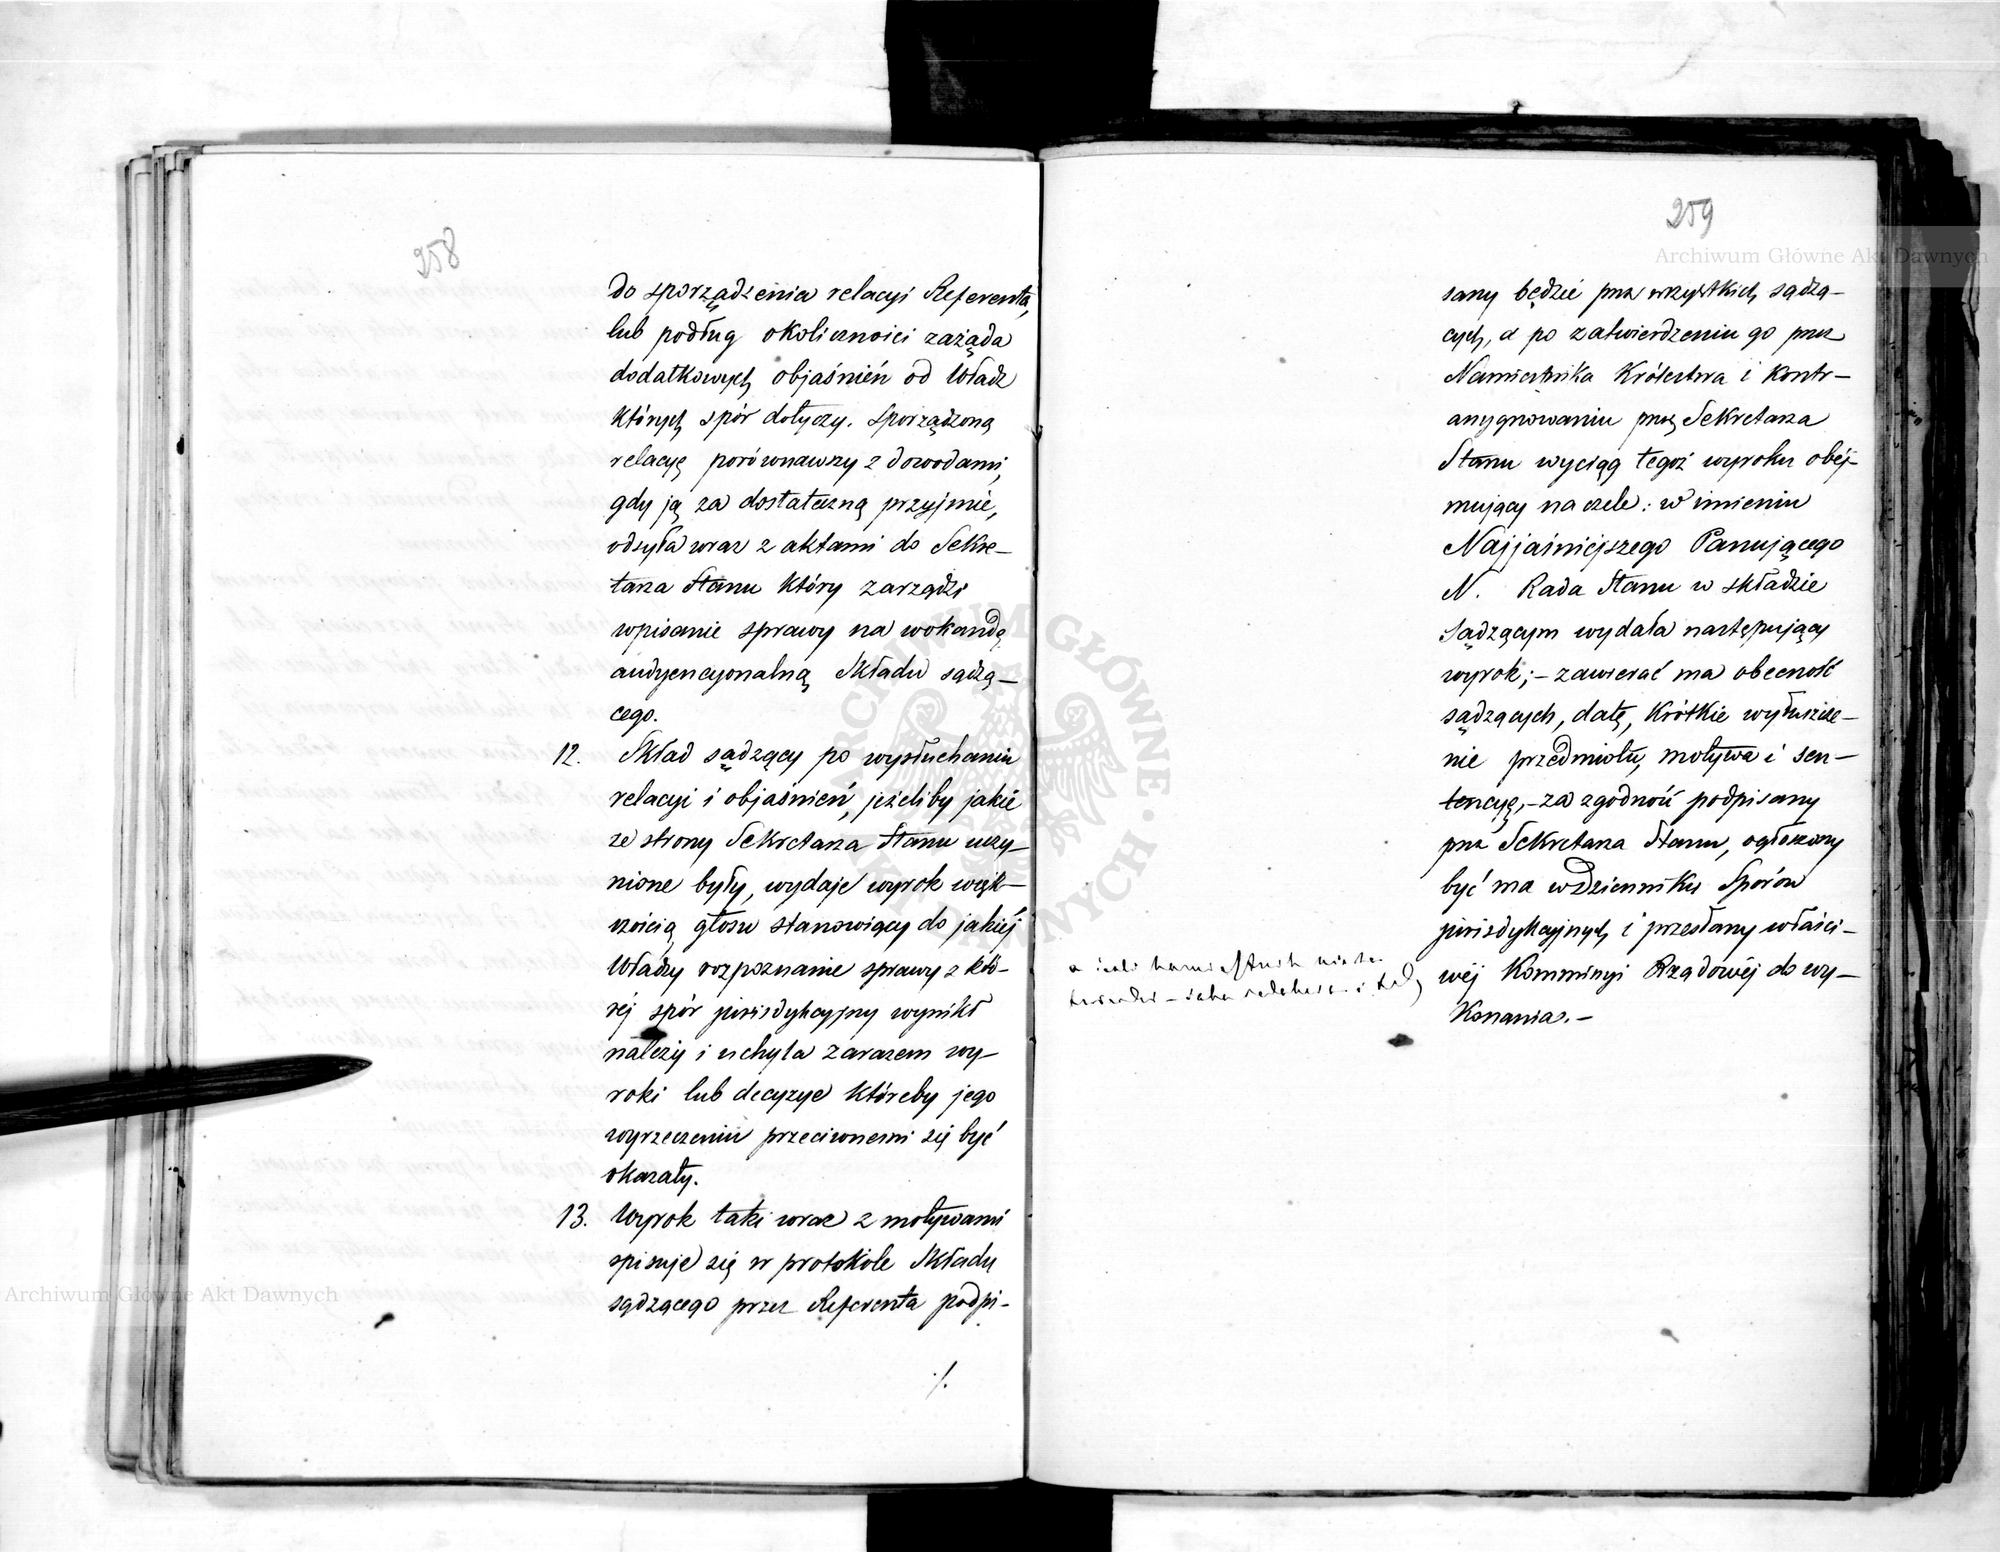 258
do sporządzenia relacyi Referenta,
lub podług okoliczności zażąda
dodatkowych objaśnień od Władz
których spór dotyczy. Sporządzoną
relacyę porównawszy z dowodami,
gdy ją za dostateczną przyjmie,
odsyła wraz z aktami do Sekre–
tarza Stanu który zarządzi
wpisanie sprawy na wokandę
audyencyonalną Składu sądzą–
cego.
12. Skład sądzący po wysłuchaniu
relacyi i objaśnień, jeżeliby jakie
ze strony Sekretarza Stanu uczy–
nione były, wydaje wyrok więk–
szością głosu stanowiący do jakiéj
Władzy rozpoznanie sprawy z któ–
réj spór jurisdykcyjny wynikł
należy i uchyla zarazem wy–
roki lub decyzye któreby jego
wyrzeczeniu przeciwnemi się być
okazały.
13. Wyrok taki wraz z motywami
spisuje się w protokóle Składu
sądzącego przez Referenta podpi–
./.
259
sany będzie przez wszystkich sądzą–
cych, a po zatwierdzeniu go przez
Namiestnika Królestwa i kontr–
asygnowaniu przez Sekretarza
Stanu wyciąg tegoż wyroku obéj–
mujący na czele: w imieniu
Najjaśniejszego Panującego
N. Rada Stanu w składzie
Sądzącym wydała następujący
wyrok; – zawierać ma obecność
sądzących, datę, krótkie wyłuszcze–
nie przedmiotu, motywa i sen–
tencyę, – za zgodność podpisany
przez Sekretarza Stanu, ogłoszony
być ma w Dzienniku Sporów
jurisdykcyjnych i przesłany właści–
wéj Kommissyi Rządowéj do wy–
konania. –
Archiwum Główne Akt Dawnych
Archiwum Główne Akt Dawnych
ARCHIWUM GŁÓWNE AKT DAWNYCH